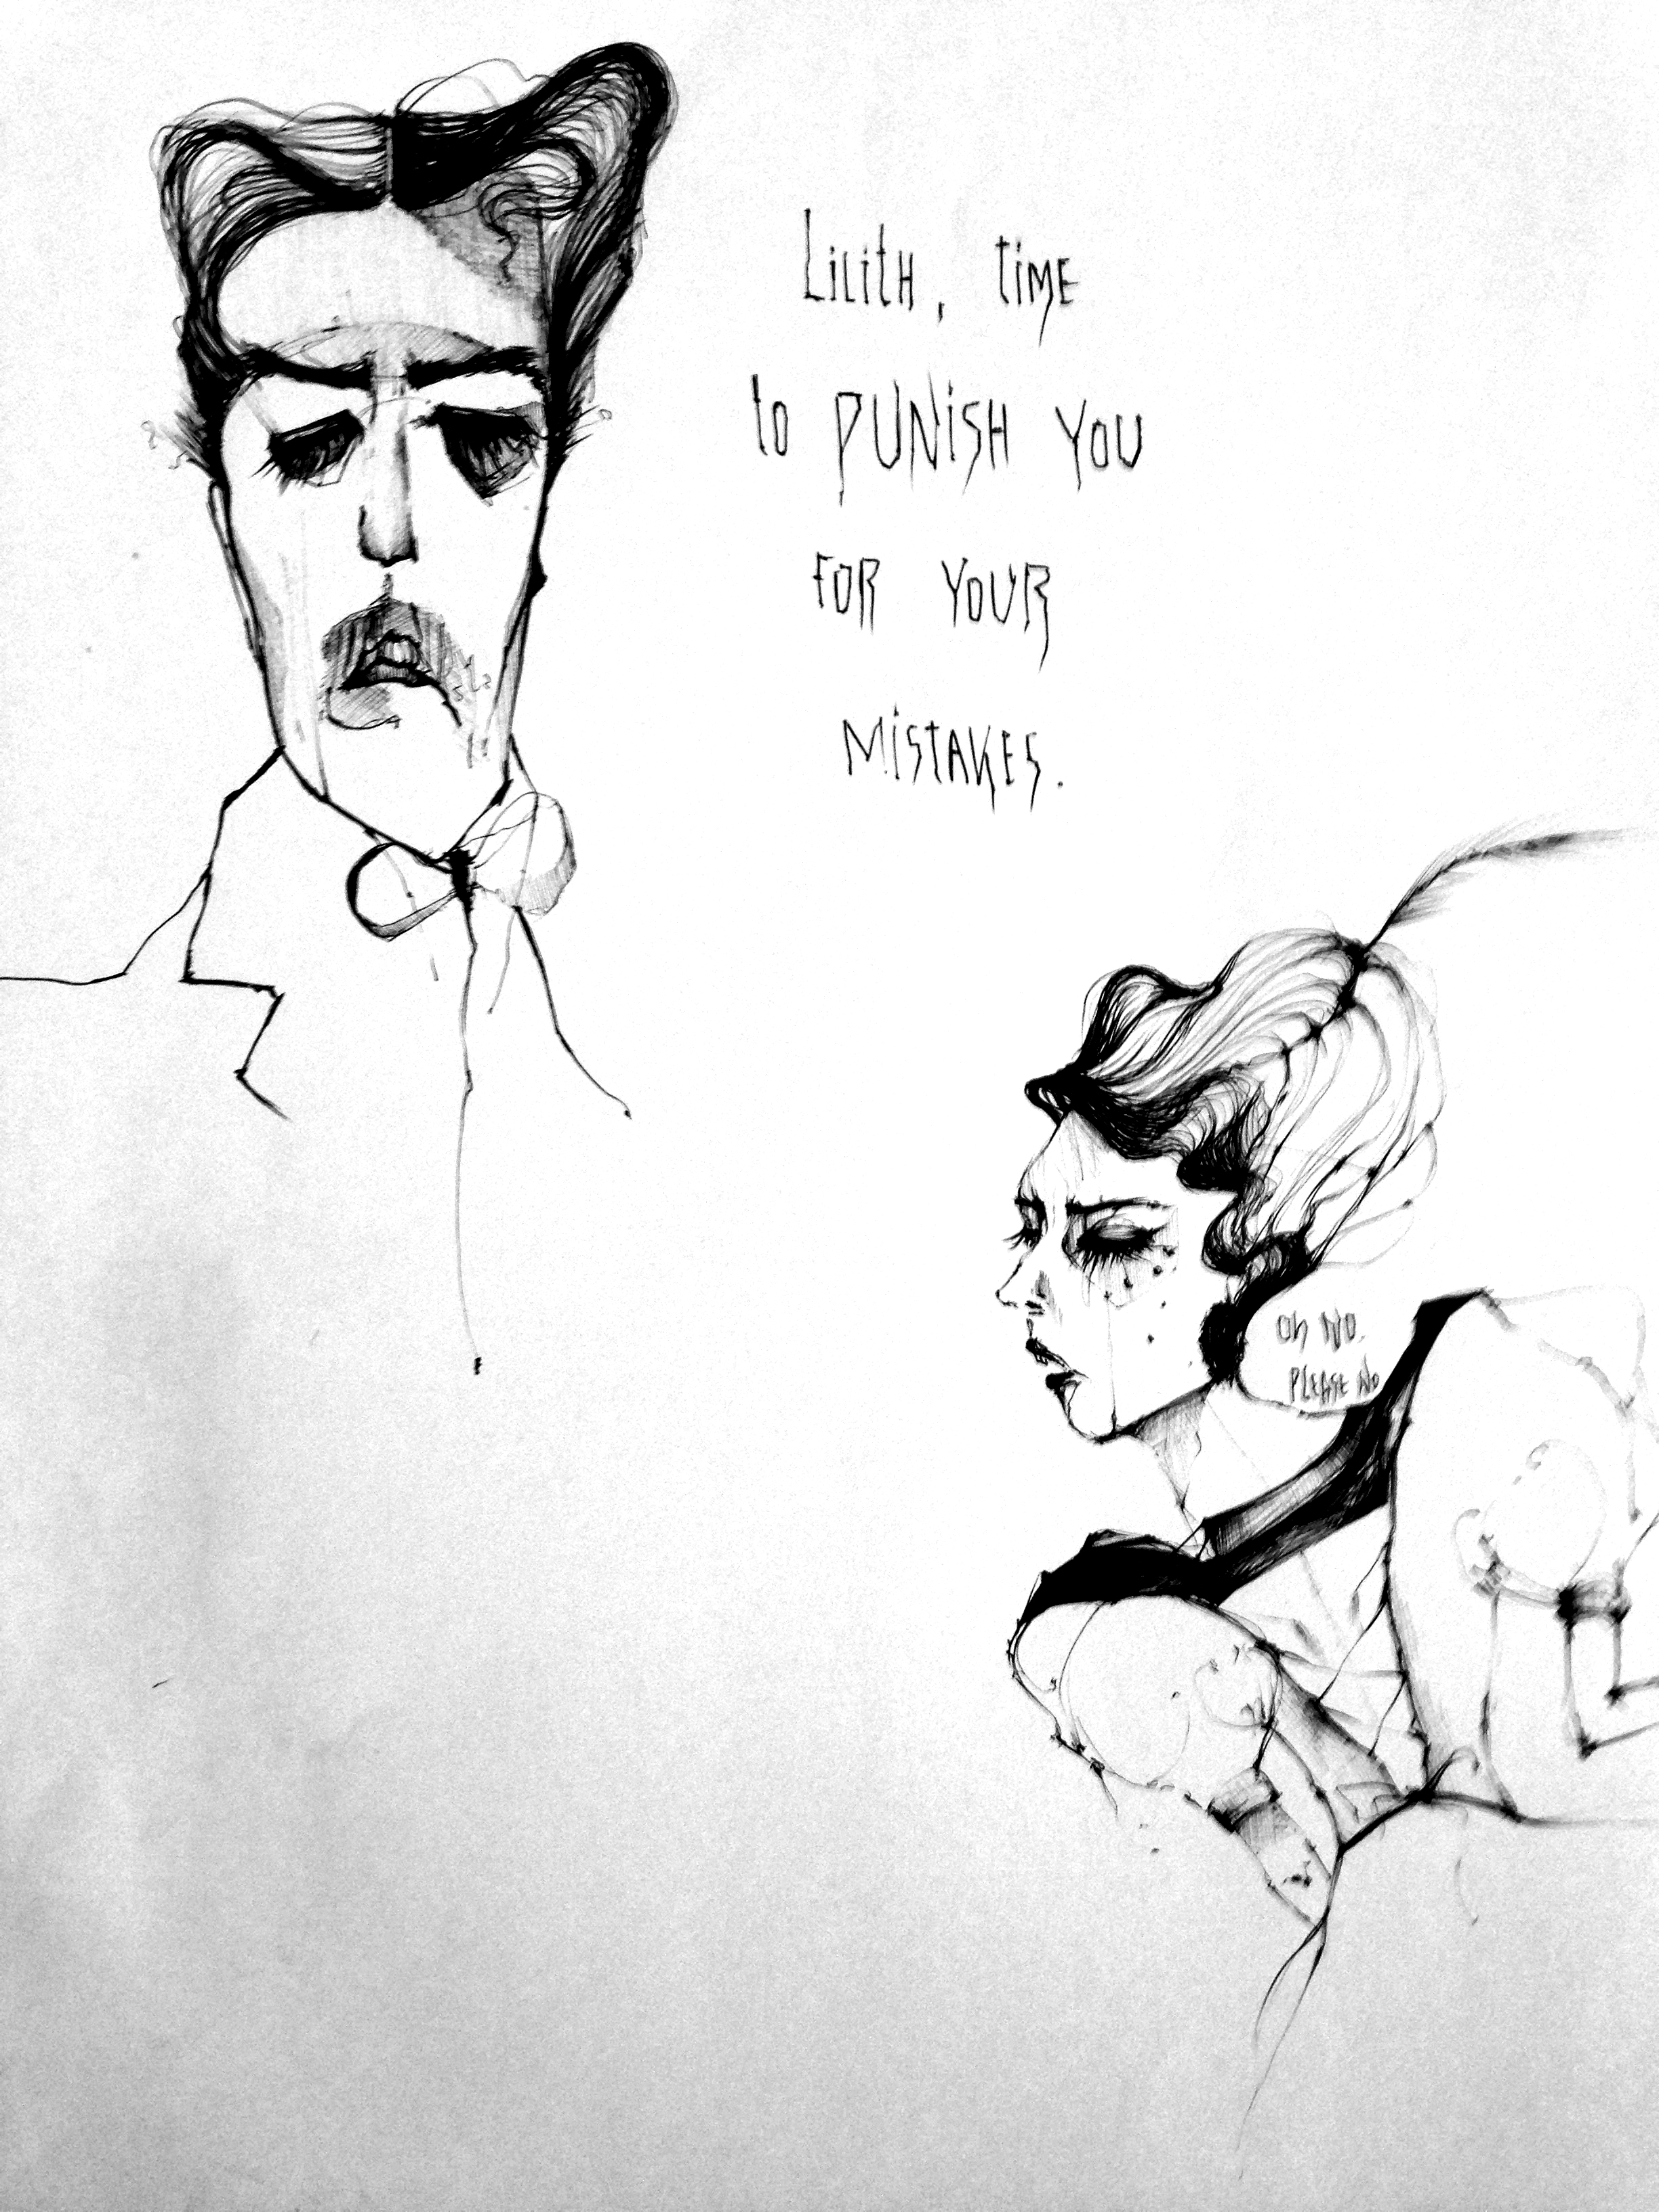 Lilith, time
to PUNiSH YOU
FOR YOUR
MiStAKES.
Oh NO.
PLEASE NO